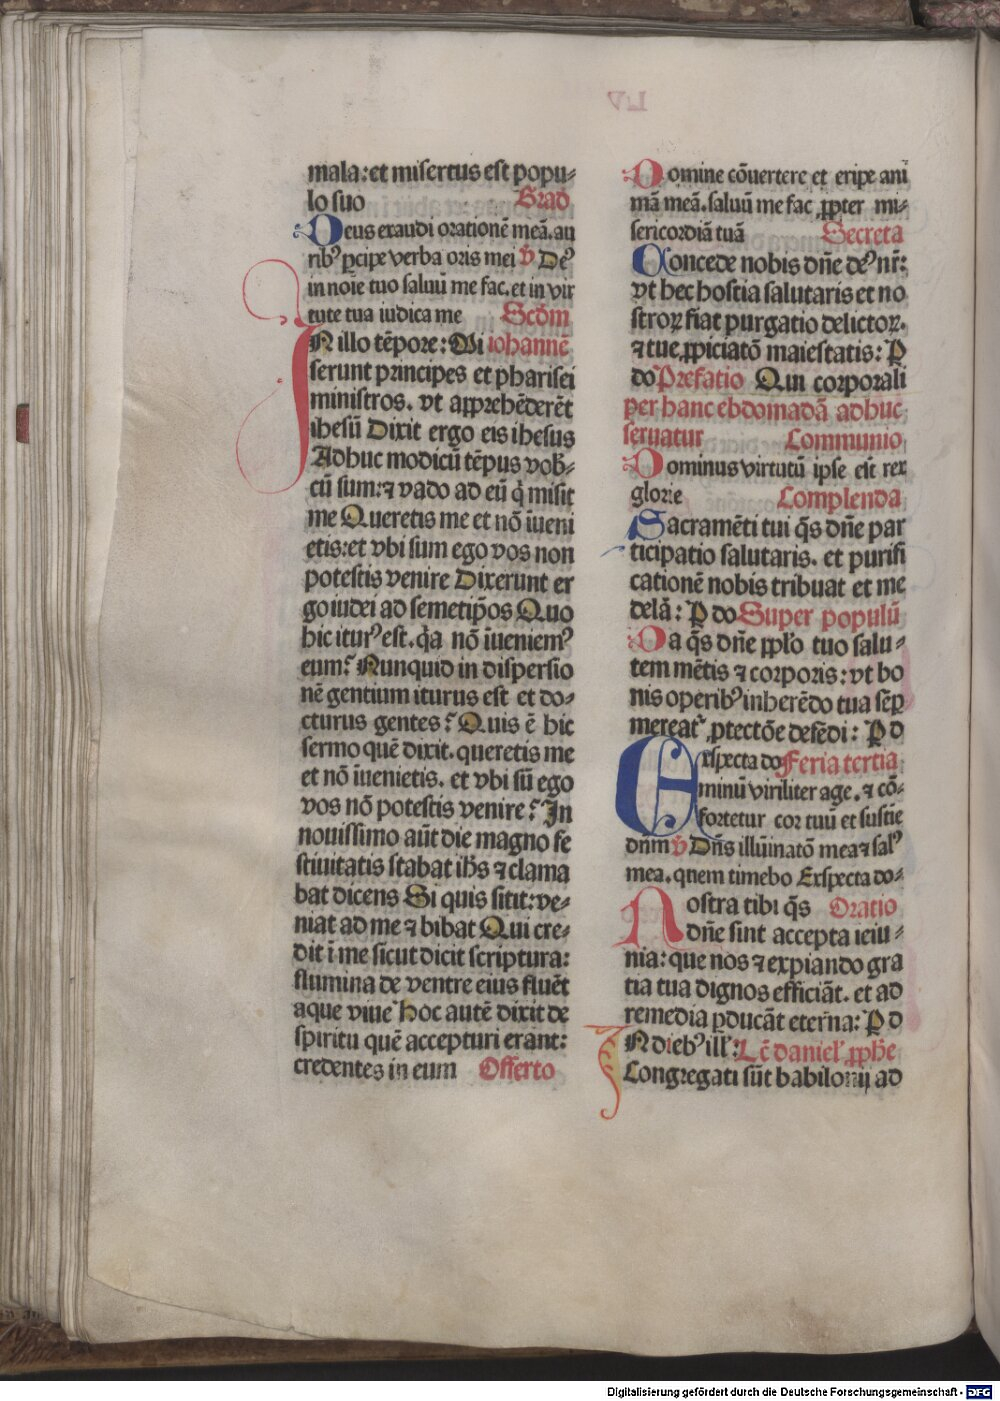 mala: et misertus est popu-
lo suo Grad
Deus exaudi orationē meā. au
rib⁹ ꝑcipe verba oris mei ℣ De⁹
in noīe tuo saluū me fac. et in vir
tute tua iudica me Scḋm
IN illo tēpore: Mi iohannē
serunt principes et pharisei
ministros. vt apprehēderēt
ihesū Dixit ergo eis ihesus
Adhuc modicū tēpus vob-
cū sum: ⁊ vado ad eū q̇ misit
me Queretis me et nō īueni
etis: et vbi sum ego vos non
potestis venire Dixerunt er
go iudei ad semetip̄os Quo
hic itur⁹ est. q̇a nō īueniem⁹
eum? Nunquid in dispersio
nē gentium iturus est et do-
cturus gentes? Quis ē hic
sermo quē dixit. queretis me
et nō īuenietis. et vbi sū ego
vos nō potestis venire? In
nouissimo aūt die magno fe
stiuitatis stabat ih̄s ⁊ clama
bat dicens Si quis sitit: ve-
niat ad me ⁊ bibat Qui cre-
dit ī me sicut dicit scriptura:
flumina de ventre eius fluēt
aque viue Hoc autē dixit de
spiritu quē accepturi erant:
credentes in eum Offerto
Domine cōuertere et eripe ani
mā meā. saluū me fac ꝓpter mi-
sericordiā tuā Secreta
Concede nobis dn̄e de⁹ nr̄:
vt hec hostia salutaris et no
stroꝝ fiat purgatio delictoꝝ.
⁊ tue ꝓpiciatō maiestatis: P
do Prefatio Qui corporali
per hanc ebdomadā adhuc
seruatur Communio
Dominus virtutū ipse est rex
glorie Complenda
Sacramēti tui q̄s dn̄e par
ticipatio salutaris. et purifi
cationē nobis tribuat et me
delā: P do Super populū
Da q̄s dn̄e ꝓpl'o tuo salu-
tem mētis ⁊ corporis: vt bo
nis operib⁹ inherēdo tua sēꝑ
mereat' ꝓtectōe defēdi: P d
Exspecta do Feria tertia
minū viriliter age. ⁊ cō-
fortetur cor tuū et sustie
dn̄m ℣ Dn̄s illūinatō mea ⁊ sal⁹
mea. quem timebo Exspecta do-
Nostra tibi q̄s Oratio
dn̄e sint accepta ieiu-
nia: que nos ⁊ expiando gra
tia tua dignos efficiāt. et ad
remedia ꝑducāt eterna: P d
IN dieb⁹ ill': Lc̄ daniel' ꝓphe
Congregati sūt babilonij ad
Digitalisierung gefördert durch die Deutsche Forschungsgemeinschaft - DFG